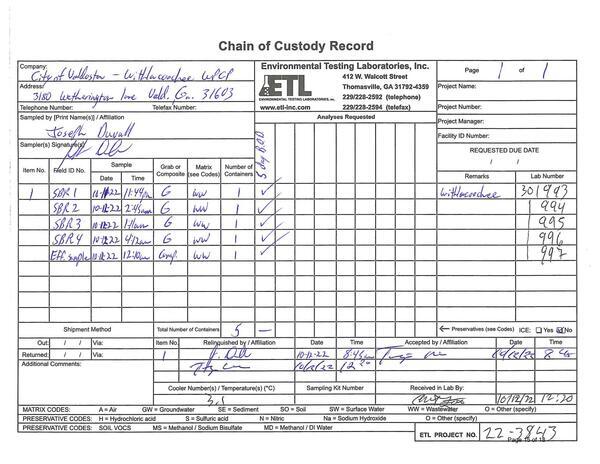 Chain of Custody Record
Company: City of Valdosta - Withlacoochee WPCP
Address: 3180 Wetherington Lane Vald. Ga. 31603
Telephone Number: Telefax Number:
ETL
ENVIRONMENTAL TESTING LABORATORIES, INC.
Environmental Testing Laboratories, Inc.
412 W. Walcott Street
Thomasville, GA 31792-4359
229/228-2592 (telephone)
www.etl-inc.com 229/228-2594 (telefax)
Page 1 of 1
Project Name:
Project Number:
Project Manager:
Facility ID Number:
REQUESTED DUE DATE
/ /
Sampled by [Print Name(s)] / Affiliation
Joseph Duvall
Sampler(s) Signature(s)
Analyses Requested
5 day BOD
Item No. Field ID No. Sample Date Time Grab or Composite Matrix (see Codes) Number of Containers Remarks Lab Number
1 SBR 1 G WW 1 ✓ Withlacoochee 301993
SBR 2 G WW 1 ✓ 994
SBR 3 G WW 1 ✓ 995
SBR 4 G WW 1 ✓ 996
Eff. Sample Comp. WW 1 ✓ 997
Shipment Method Total Number of Containers 5 - ← Preservatives (see Codes) ICE: Yes No
Out: / / Via: Item No. Relinquished by / Affiliation Date Time Accepted by / Affiliation Date Time
Returned: / / Via: 1 10-12-22
Additional Comments: 10/12/22
Cooler Number(s) / Temperature(s) (°C) Sampling Kit Number Received in Lab By: Date Time
3.1 10/12/22 12:20
MATRIX CODES: A = Air GW = Groundwater SE = Sediment SO = Soil SW = Surface Water WW = Wastewater O = Other (specify)
PRESERVATIVE CODES: H = Hydrochloric acid S = Sulfuric acid N = Nitric Na = Sodium Hydroxide O = Other (specify)
PRESERVATIVE CODES: SOIL VOCS MS = Methanol / Sodium Bisulfate MD = Methanol / DI Water
ETL PROJECT NO. 22-3843